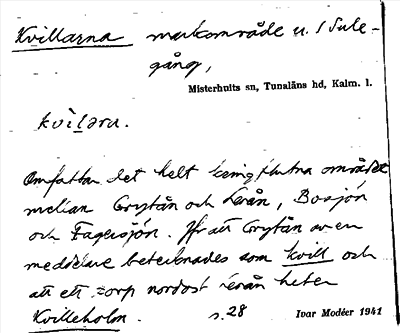 Kvillarna markområde u. 1 Sule-
gång,
Misterhults sn, Tunaläns hd, Kalm. l.
kvìlǝra.
Omfattar det helt kringflutna området
mellan Grytån och Lerån, Bosjön
och Fagersjön. Jfr att Grytån av en
meddelare betecknades som kvill och
att ett torp nordost Lerån heter
Kvilleholm. s. 28 Ivar Modéer 1941